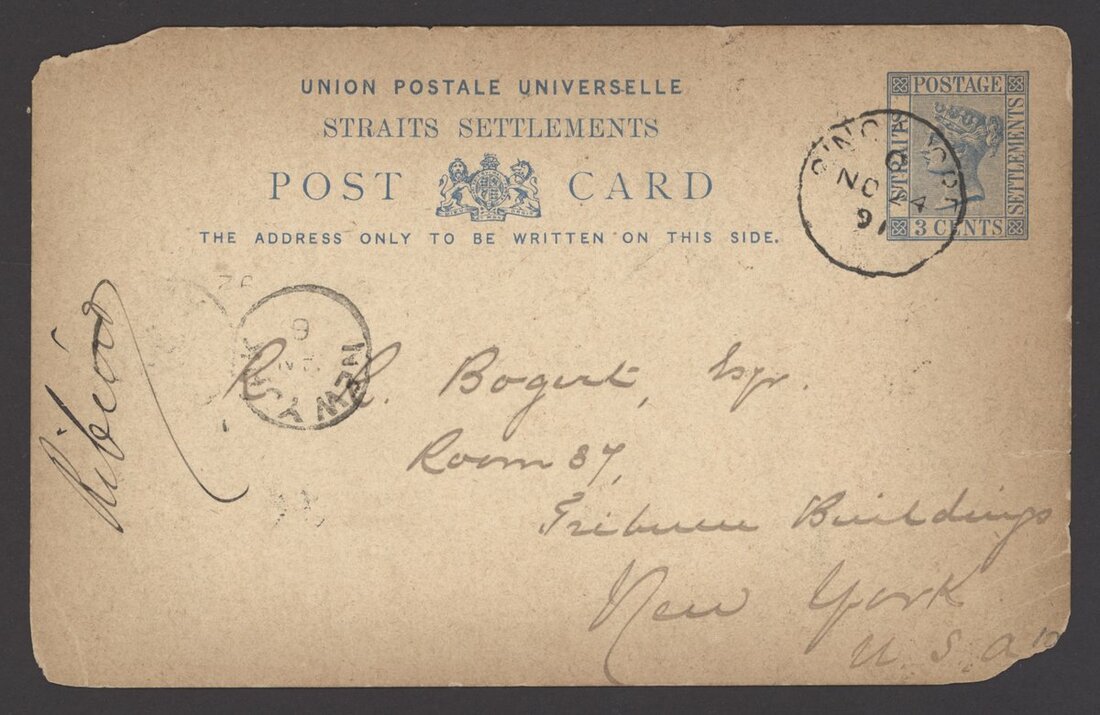 UNION POSTALE UNIVERSELLE
STRAITS SETTLEMENTS
POST CARD
THE ADDRESS ONLY TO BE WRITTEN ON THIS SIDE.
POSTAGE
STRAITS
SETTLEMENTS
3 CENTS
NO 4
91
NEW Y
R. Bogert, Esqr.
Room 37,
Tribune Buildings
New York
U.S.A